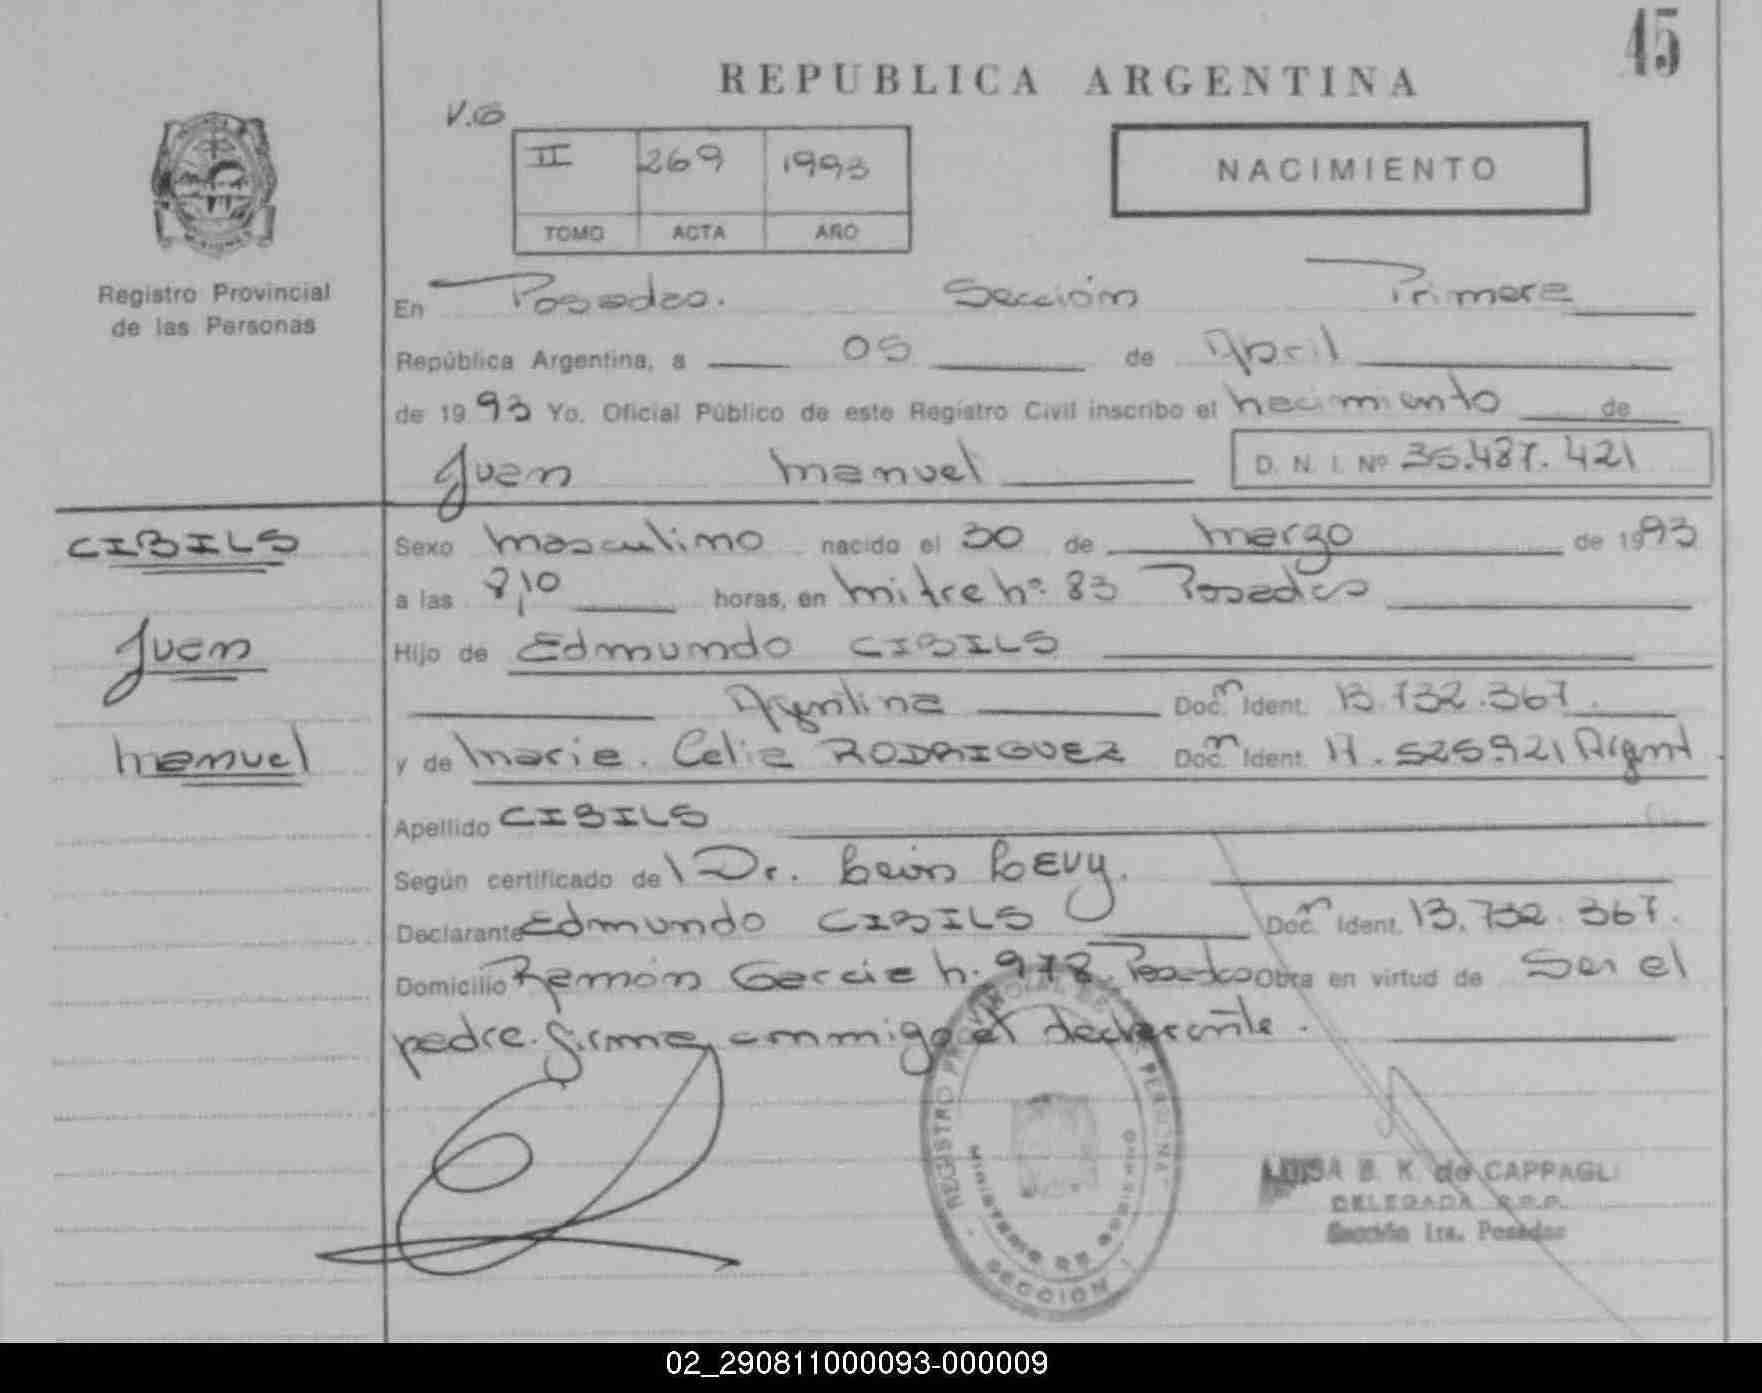 45
REPUBLICA ARGENTINA
V.G
II 269 1993
TOMO ACTA AÑO
NACIMIENTO
Registro Provincial
de las Personas
En Posadas. Sección Primera
República Argentina, a 05 de Abril
de 19 93 Yo. Oficial Público de este Registro Civil inscribo el nacimiento de
Juan Manuel D. N. I. Nº 35.487.421
CIBILS
Juan
Manuel
Sexo masculino nacido el 30 de marzo de 1993
a las 8,10 horas, en mitre nº 83 Posadas
Hijo de Edmundo CIBILS
Argentina Doc. Ident. 13.732.367.
y de Maria Celia RODRIGUEZ Doc. Ident. 17.525.921 Argent
Apellido CIBILS
Según certificado del Dr. León LEVY.
Declarante Edmundo CIBILS Doc. Ident. 13.732.367.
Domicilio Ramón Garcia n. 978 Posadas Obra en virtud de Ser el
padre. firma conmigo el declarante.
REGISTRO PROVINCIAL DE LAS PERSONAS
MINISTERIO DE GOBIERNO
SECCION 1
LUISA B. K. de CAPPAGLI
DELEGADA R.P.P.
Sección 1ra. Posadas
02_290811000093-000009